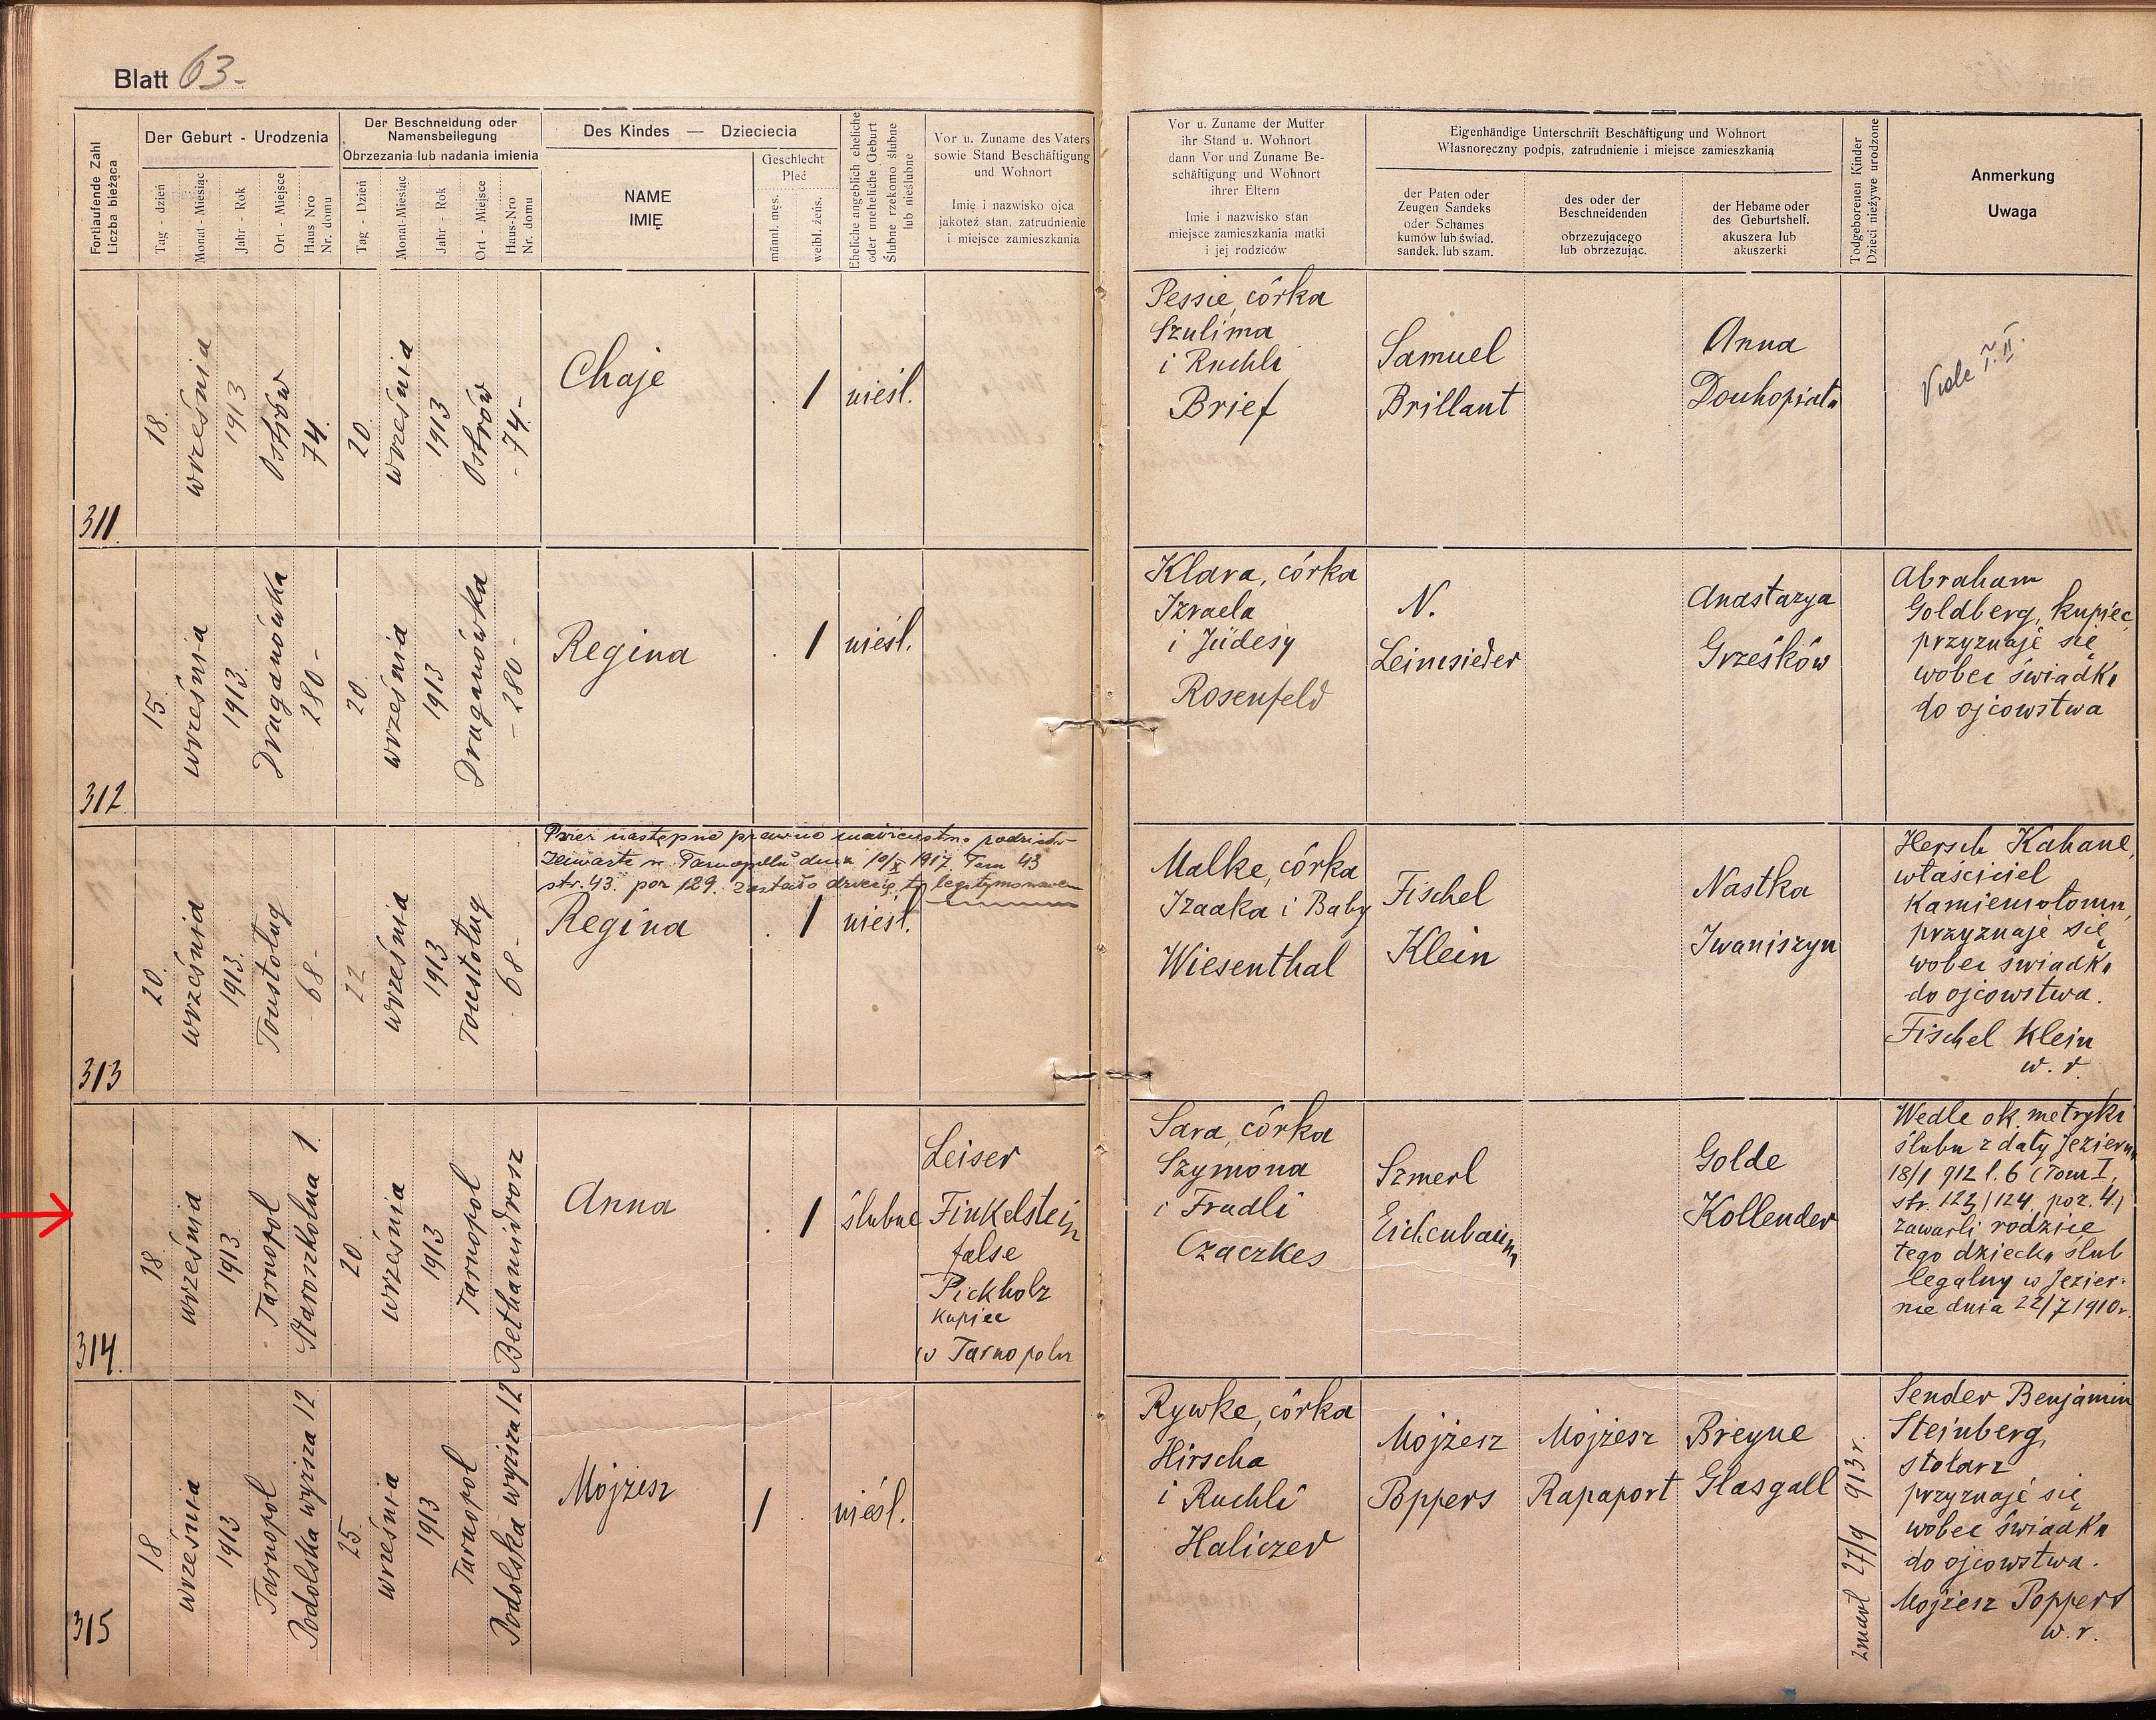 Blatt 63-
Fortlaufende Zahl
Liczba bieżąca
Der Geburt - Urodzenia
Tag - dzień
Monat - Miesiąc
Jahr - Rok
Ort - Miejsce
Haus Nro
Nr. domu
Der Beschneidung oder
Namensbeilegung
Obrzezania lub nadania imienia
Tag - Dzień
Monat-Miesiąc
Jahr - Rok
Ort - Miejsce
Haus-Nro
Nr. domu
Des Kindes — Dzieciecia
NAME
IMIĘ
Geschlecht
Pleć
männl. męs.
weibl. żeńs.
Eheliche angeblich eheliche
oder uneheliche Geburt
Ślubne rzekomo ślubne
lub nieślubne
Vor u. Zuname des Vaters
sowie Stand Beschäftigung
und Wohnort
Imię i nazwisko ojca
jakoteż stan, zatrudnienie
i miejsce zamieszkania
Vor u. Zuname der Mutter
ihr Stand u. Wohnort
dann Vor und Zuname Be-
schäftigung und Wohnort
ihrer Eltern
Imie i nazwisko stan
miejsce zamieszkania matki
i jej rodziców
Eigenhändige Unterschrift Beschäftigung und Wohnort
Własnoręczny podpis, zatrudnienie i miejsce zamieszkania
der Paten oder
Zeugen Sandeks
oder Schames
kumów lub świad.
sandek. lub szam.
des oder der
Beschneidenden
obrzezującego
lub obrzezując.
der Hebame oder
des Geburtshelf.
akuszera lub
akuszerki
Todgeborenen Kinder
Dzieci nieżywe urodzone
Anmerkung
Uwaga
311
18.
września
1913
Ostrów
74.
20.
września
1913
Ostrów
- 74 -
Chaje
1
nieśl.
Pessie, córka
Szulima
i Ruchli
Brief
Samuel
Brillant
Anna
Vide T. II.
312
15.
września
1913.
Draganówka
280 -
20.
września
1913
Draganówka
- 280 -
Regina
1
nieśl.
Klara, córka
Izraela
i Jüdesy
Rosenfeld
N.
Leimsieder
Anastazya
Grześków
Abraham
Goldberg, kupiec
przyznaje się
wobec świadka
do ojcowstwa
313
20.
września
1913.
Toustoług
68 -
22
września
1913
Toustoług
68 -
Przez następne prawne małżeństwo rodziców
zawarte w Tarnopolu dnia 10/X 1917 Tom 43
str. 43. poz 129. zostało dziecię to legitymowane
Regina
1
nieśl.
Malke, córka
Izaaka i Baby
Wiesenthal
Fischel
Klein
Nastka
Iwaniszyn
Hersch Kahane,
właściciel
kamieniołomu,
przyznaje się
wobec świadka
do ojcowstwa.
Fischel Klein
w. r.
314.
18.
września
1913.
Tarnopol
Staroszkolna 1.
20.
września
1913
Tarnopol
Bethamidrosz
Anna
1
ślubne
Leiser
Finkelstein
false
Pickholz
kupiec
w Tarnopolu
Sara, córka
Szymona
i Fradli
Czaczkes
Szmerl
Eichenbaum
Golde
Kollender
Wedle ok. metryki
ślubu z daty Jezierna
18/1 912 l. 6 (Tom I,
str. 123/124, poz. 4)
zawarli rodzice
tego dziecka ślub
legalny w Jezier-
nie dnia 22/7 1910r.
315
18
września
1913
Tarnopol
Podolska wyższa 12
25.
wrieśnia
1913
Tarnopol
Podolska wyższa 12
Mojżesz
1
nieśl.
Rywke, córka
Hirscha
i Ruchli
Haliczer
Mojżesz
Poppers
Mojżesz
Rapaport
Breyne
Glasgall
zmarł 27/9 913 r.
Sender Benjamin
Steinberg,
stolarz
przyznaje się
wobec świadka
do ojcowstwa.
Mojżesz Poppers
w. r.